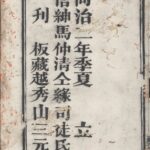 同治二年季夏 立
信紳馬仲清仝緣司徒氏
刊 板藏越秀山三元